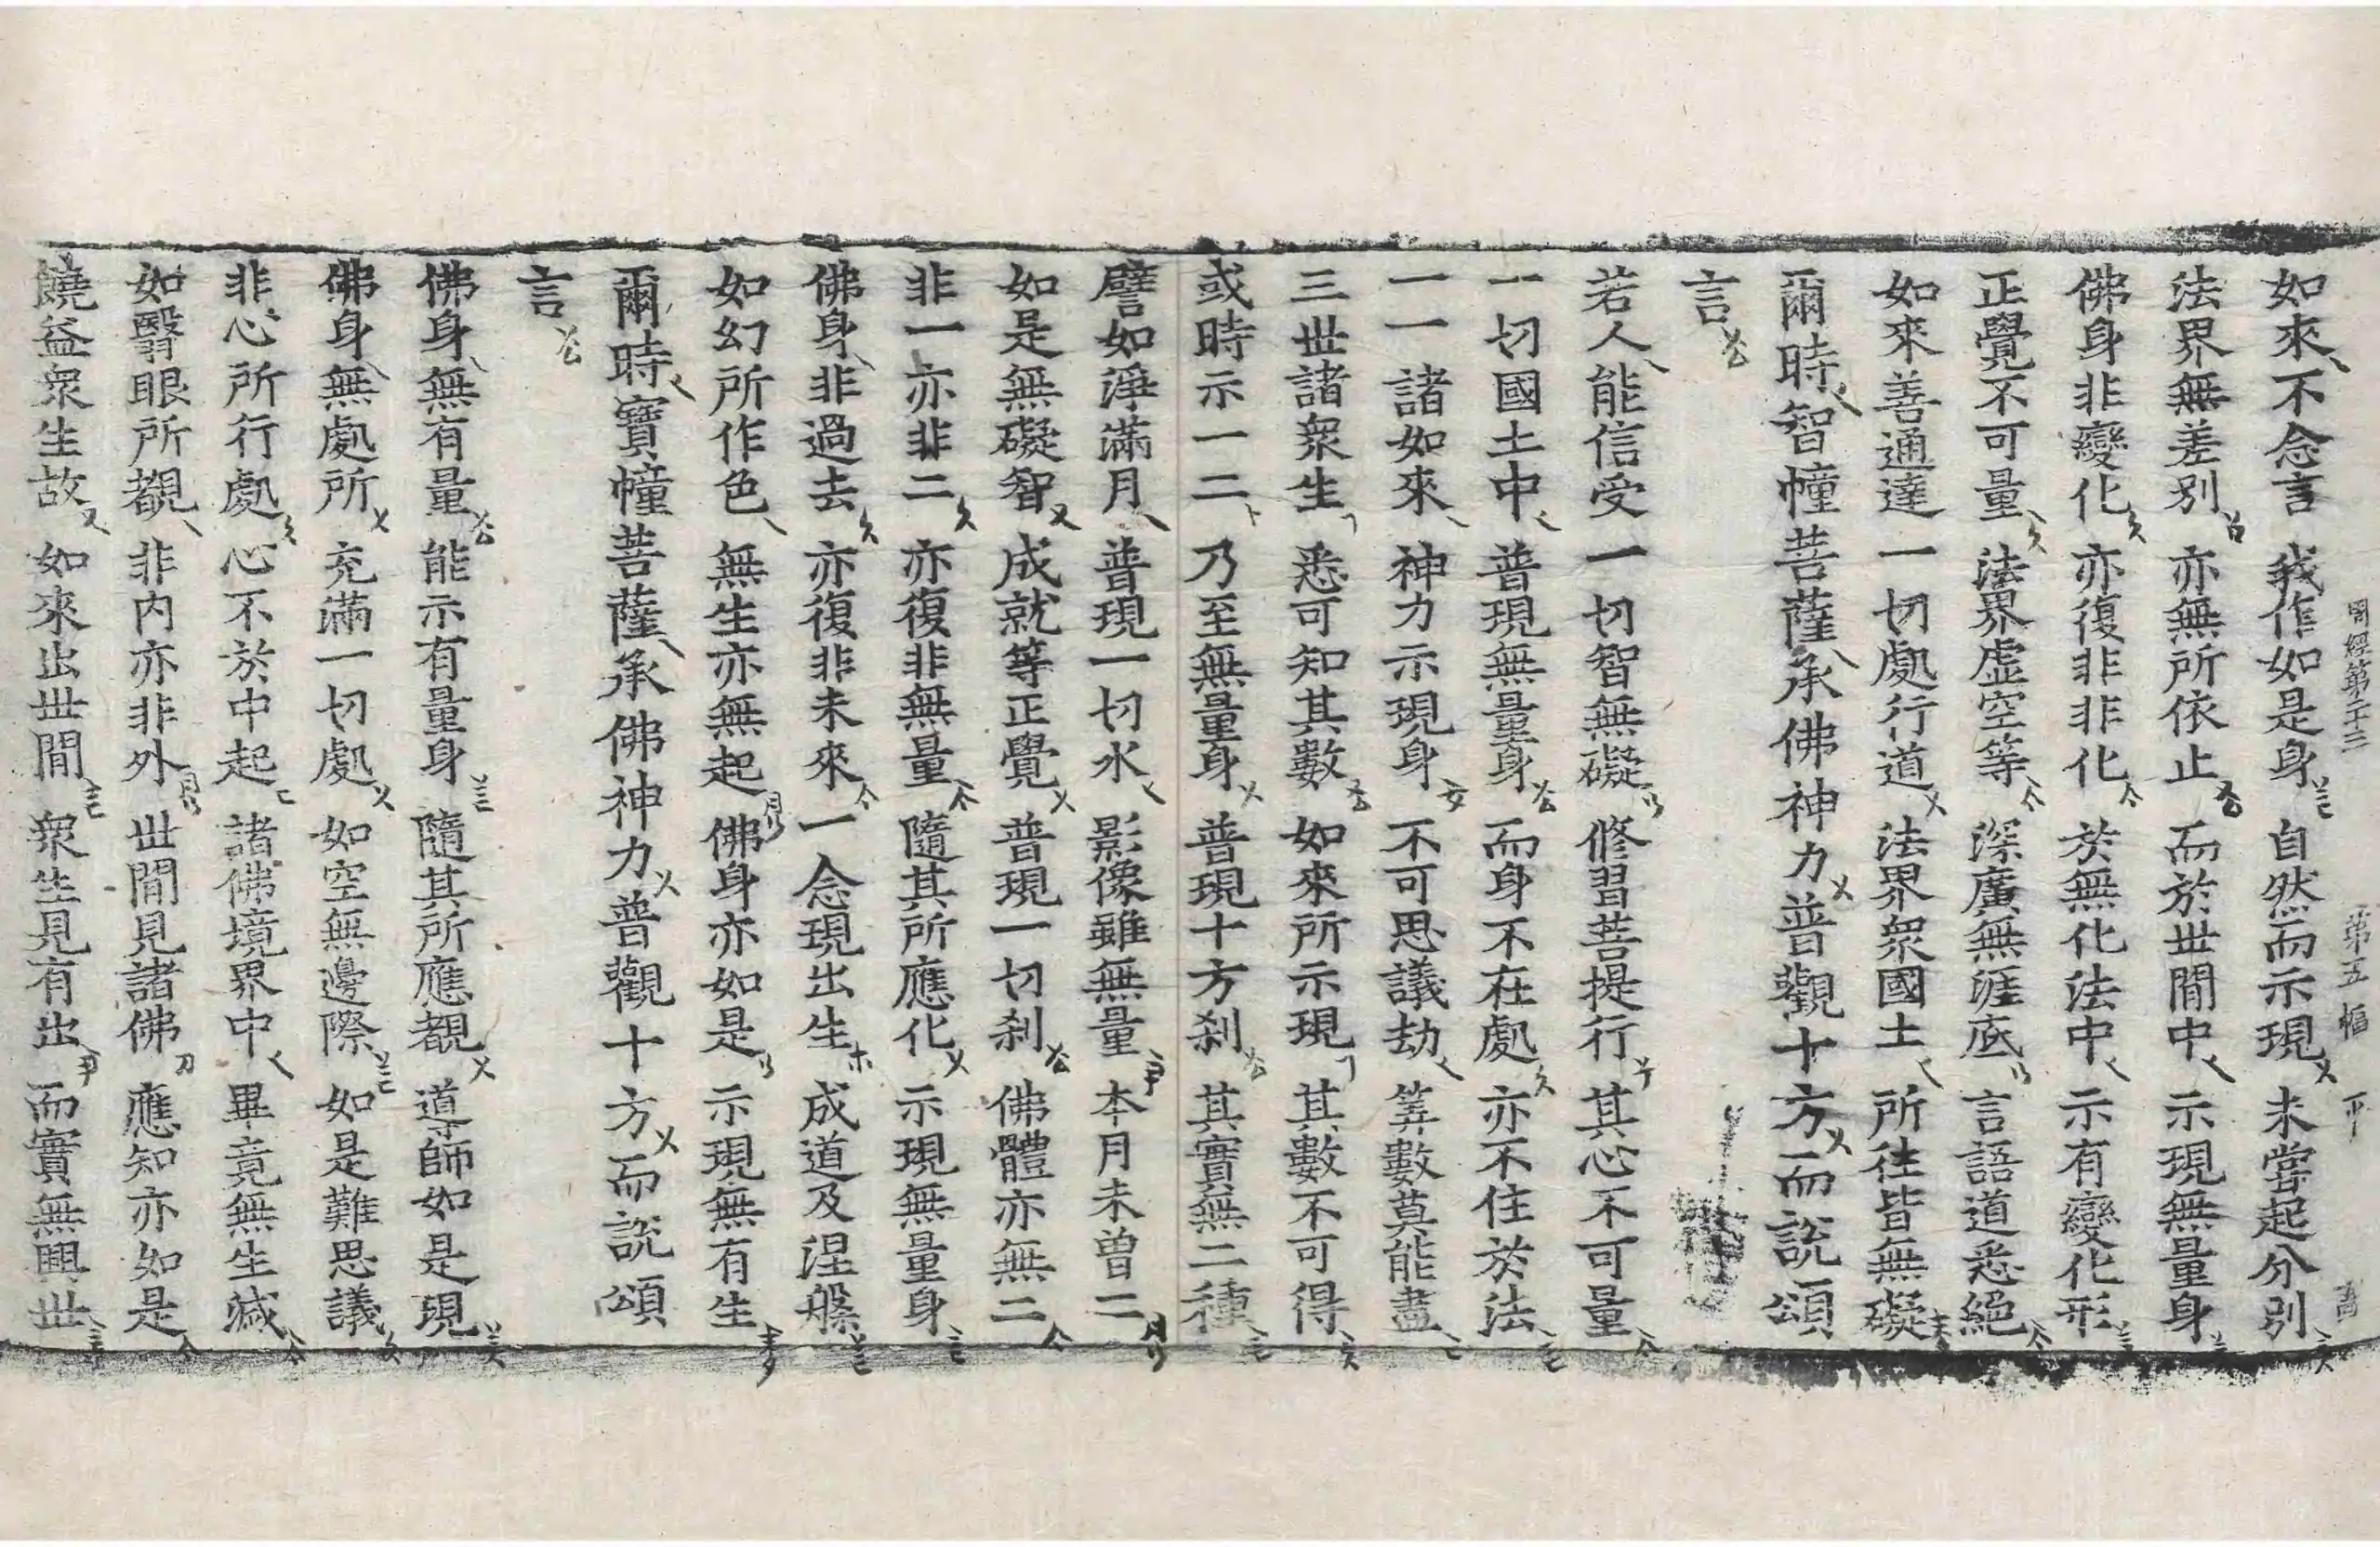 周經第二十三　第五幅　丁　啇
如來不念言　我作如是身　自然而示現　未嘗起分別
法界無差別　亦無所依止　而於世間中　示現無量身
佛身非變化　亦復非非化　於無化法中　示有變化形
正覺不可量　法界虛空等　深廣無涯底　言語道悉絕
如來善通達　一切處行道　法界衆國土　所往皆無礙
爾時智幢菩薩承佛神力普觀十方而說頌
言
若人能信受　一切智無礙　修習菩提行　其心不可量
一切國土中　普現無量身　而身不在處　亦不住於法
一一諸如來　神力示現身　不可思議劫　筭數莫能盡
三世諸衆生　悉可知其數　如來所示現　其數不可得
或時示一二　乃至無量身　普現十方刹　其實無二種
譬如淨滿月　普現一切水　影像雖無量　本月未曾二
如是無礙智　成就等正覺　普現一切刹　佛體亦無二
非一亦非二　亦復非無量　隨其所應化　示現無量身
佛身非過去　亦復非未來　一念現出生　成道及涅槃
如幻所作色　無生亦無起　佛身亦如是　示現無有生
爾時寶幢菩薩承佛神力普觀十方而說頌
言
佛身無有量　能示有量身　隨其所應覩　導師如是現
佛身無處所　充滿一切處　如空無邊際　如是難思議
非心所行處　心不於中起　諸佛境界中　畢竟無生滅
如翳眼所覩　非內亦非外　世間見諸佛　應知亦如是
饒益衆生故　如來出世間　衆生見有出　而實無興世